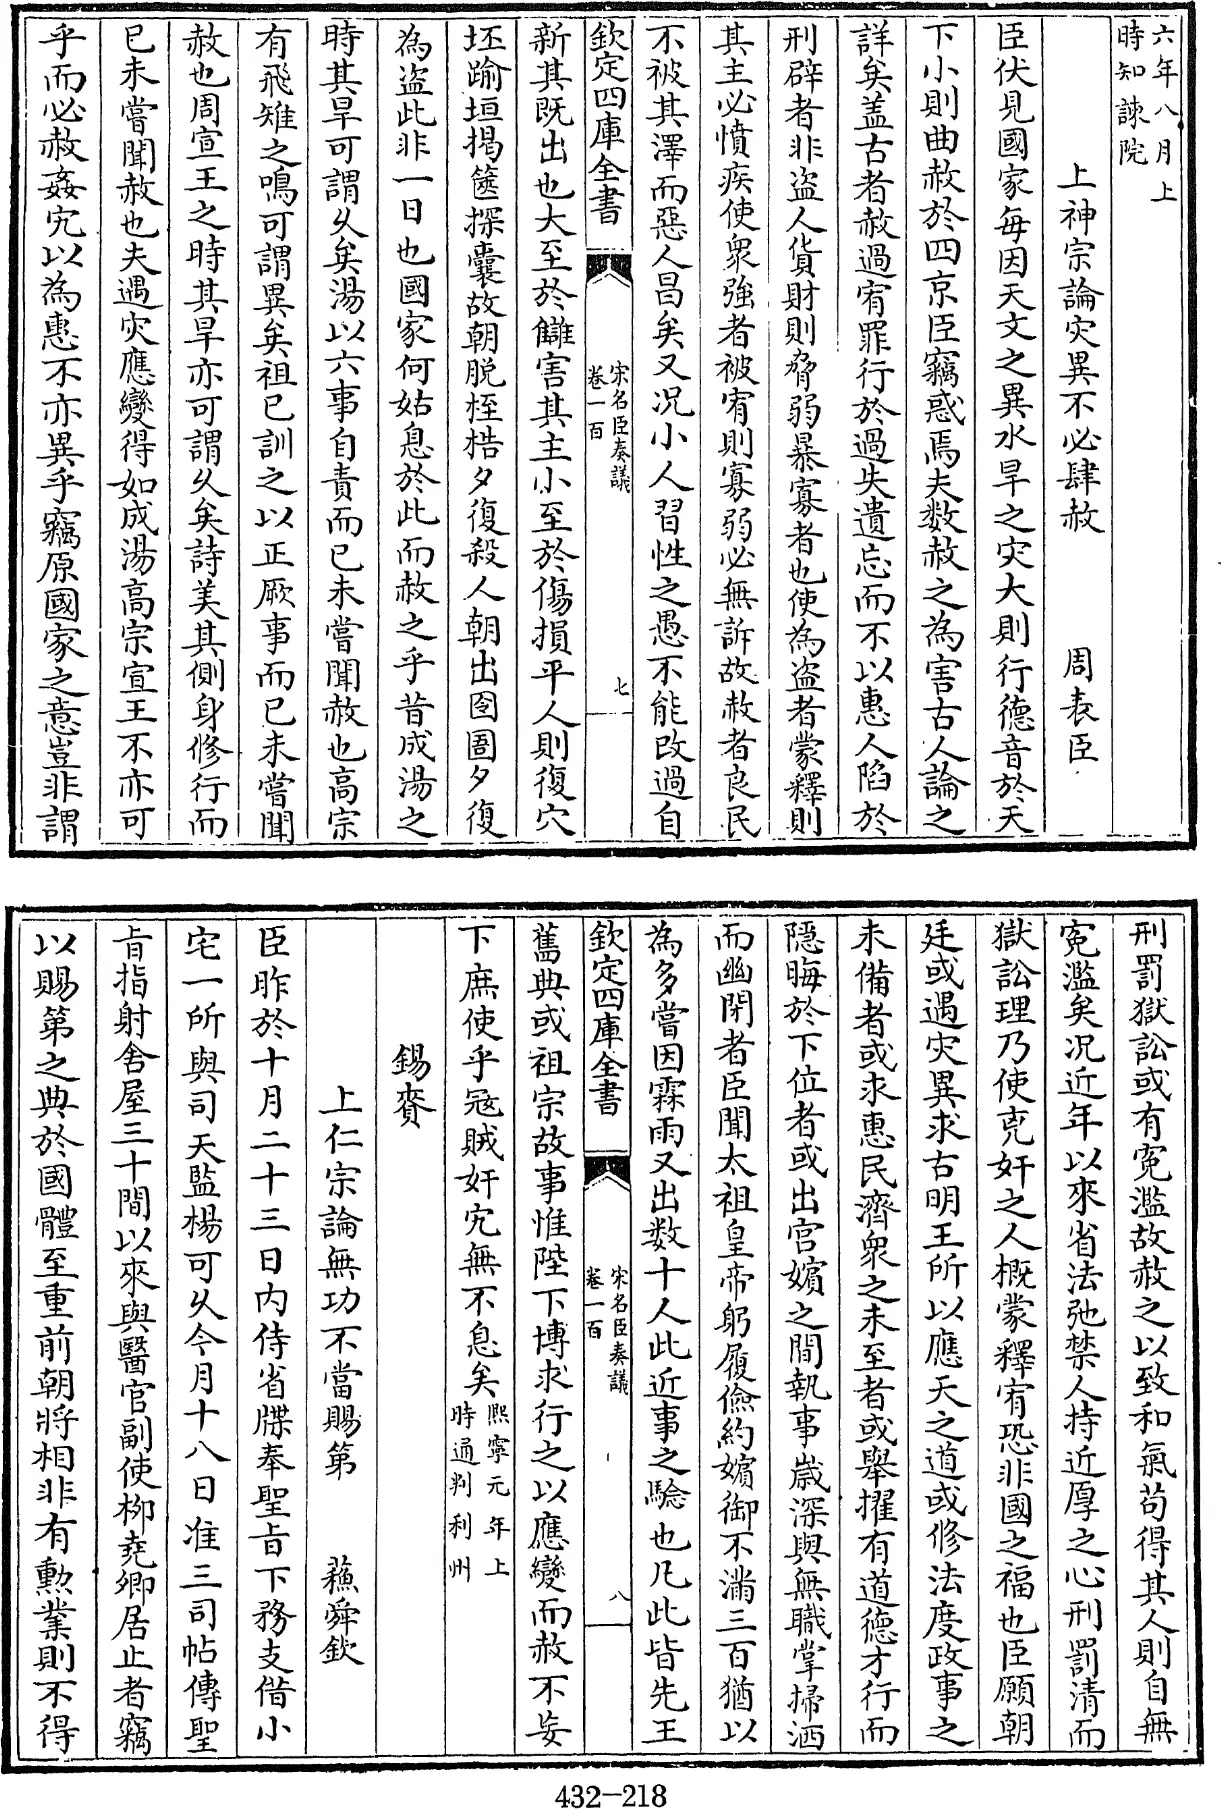 六年八月上
時知諫院
上神宗論灾異不必肆赦　周表臣
臣伏見國家每因天文之異水旱之灾大則行德音於天
下小則曲赦於四京臣竊惑焉夫数赦之為害古人論之
詳矣盖古者赦過宥罪行於過失遺忘而不以惠人陷於
刑辟者非盗人貨財則脅弱暴寡者也使為盗者蒙釋則
其主必憤疾使衆強者被宥則寡弱必無訴故赦者良民
不被其澤而惡人昌矣又况小人習性之愚不能改過自
欽定四庫全書
宋名臣奏議
卷一百
七
新其既出也大至於讎害其主小至於傷損平人則復穴
坯踰垣揭篋探囊故朝脱桎梏夕復殺人朝出囹圄夕復
為盗此非一日也國家何姑息於此而赦之乎昔成湯之
時其旱可謂乆矣湯以六事自責而已未嘗聞赦也高宗
有飛雉之鳴可謂異矣祖已訓之以正厥事而已未嘗聞
赦也周宣王之時其旱亦可謂乆矣詩美其側身修行而
已未嘗聞赦也夫遇灾應變得如成湯高宗宣王不亦可
乎而必赦姦宄以為惠不亦異乎竊原國家之意豈非謂
刑罰獄訟或有寃濫故赦之以致和氣苟得其人則自無
寃濫矣况近年以來省法弛禁人持近厚之心刑罰清而
獄訟理乃使兇奸之人概蒙釋宥恐非國之福也臣願朝
廷或遇灾異求古明王所以應天之道或修法度政事之
未備者或求惠民濟衆之未至者或舉擢有道德才行而
隱晦於下位者或出宫嬪之間執事歲深與無職掌掃洒
而幽閉者臣聞太祖皇帝躬履儉約嬪御不滿三百猶以
為多嘗因霖雨又出数十人此近事之驗也凡此皆先王
欽定四庫全書
宋名臣奏議
卷一百
八
舊典或祖宗故事惟陛下博求行之以應變而赦不妄
下庶使乎冦賊奸宄無不息矣
熙寧元年上
時通判利州
錫賚
上仁宗論無功不當賜第　蘓舜欽
臣昨於十月二十三日内侍省牒奉聖旨下務支借小
宅一所與司天監楊可乆今月十八日准三司帖傳聖
旨指射舍屋三十間以來與醫官副使柳堯卿居止者竊
以賜第之典於國體至重前朝將相非有勲業則不得
432-218